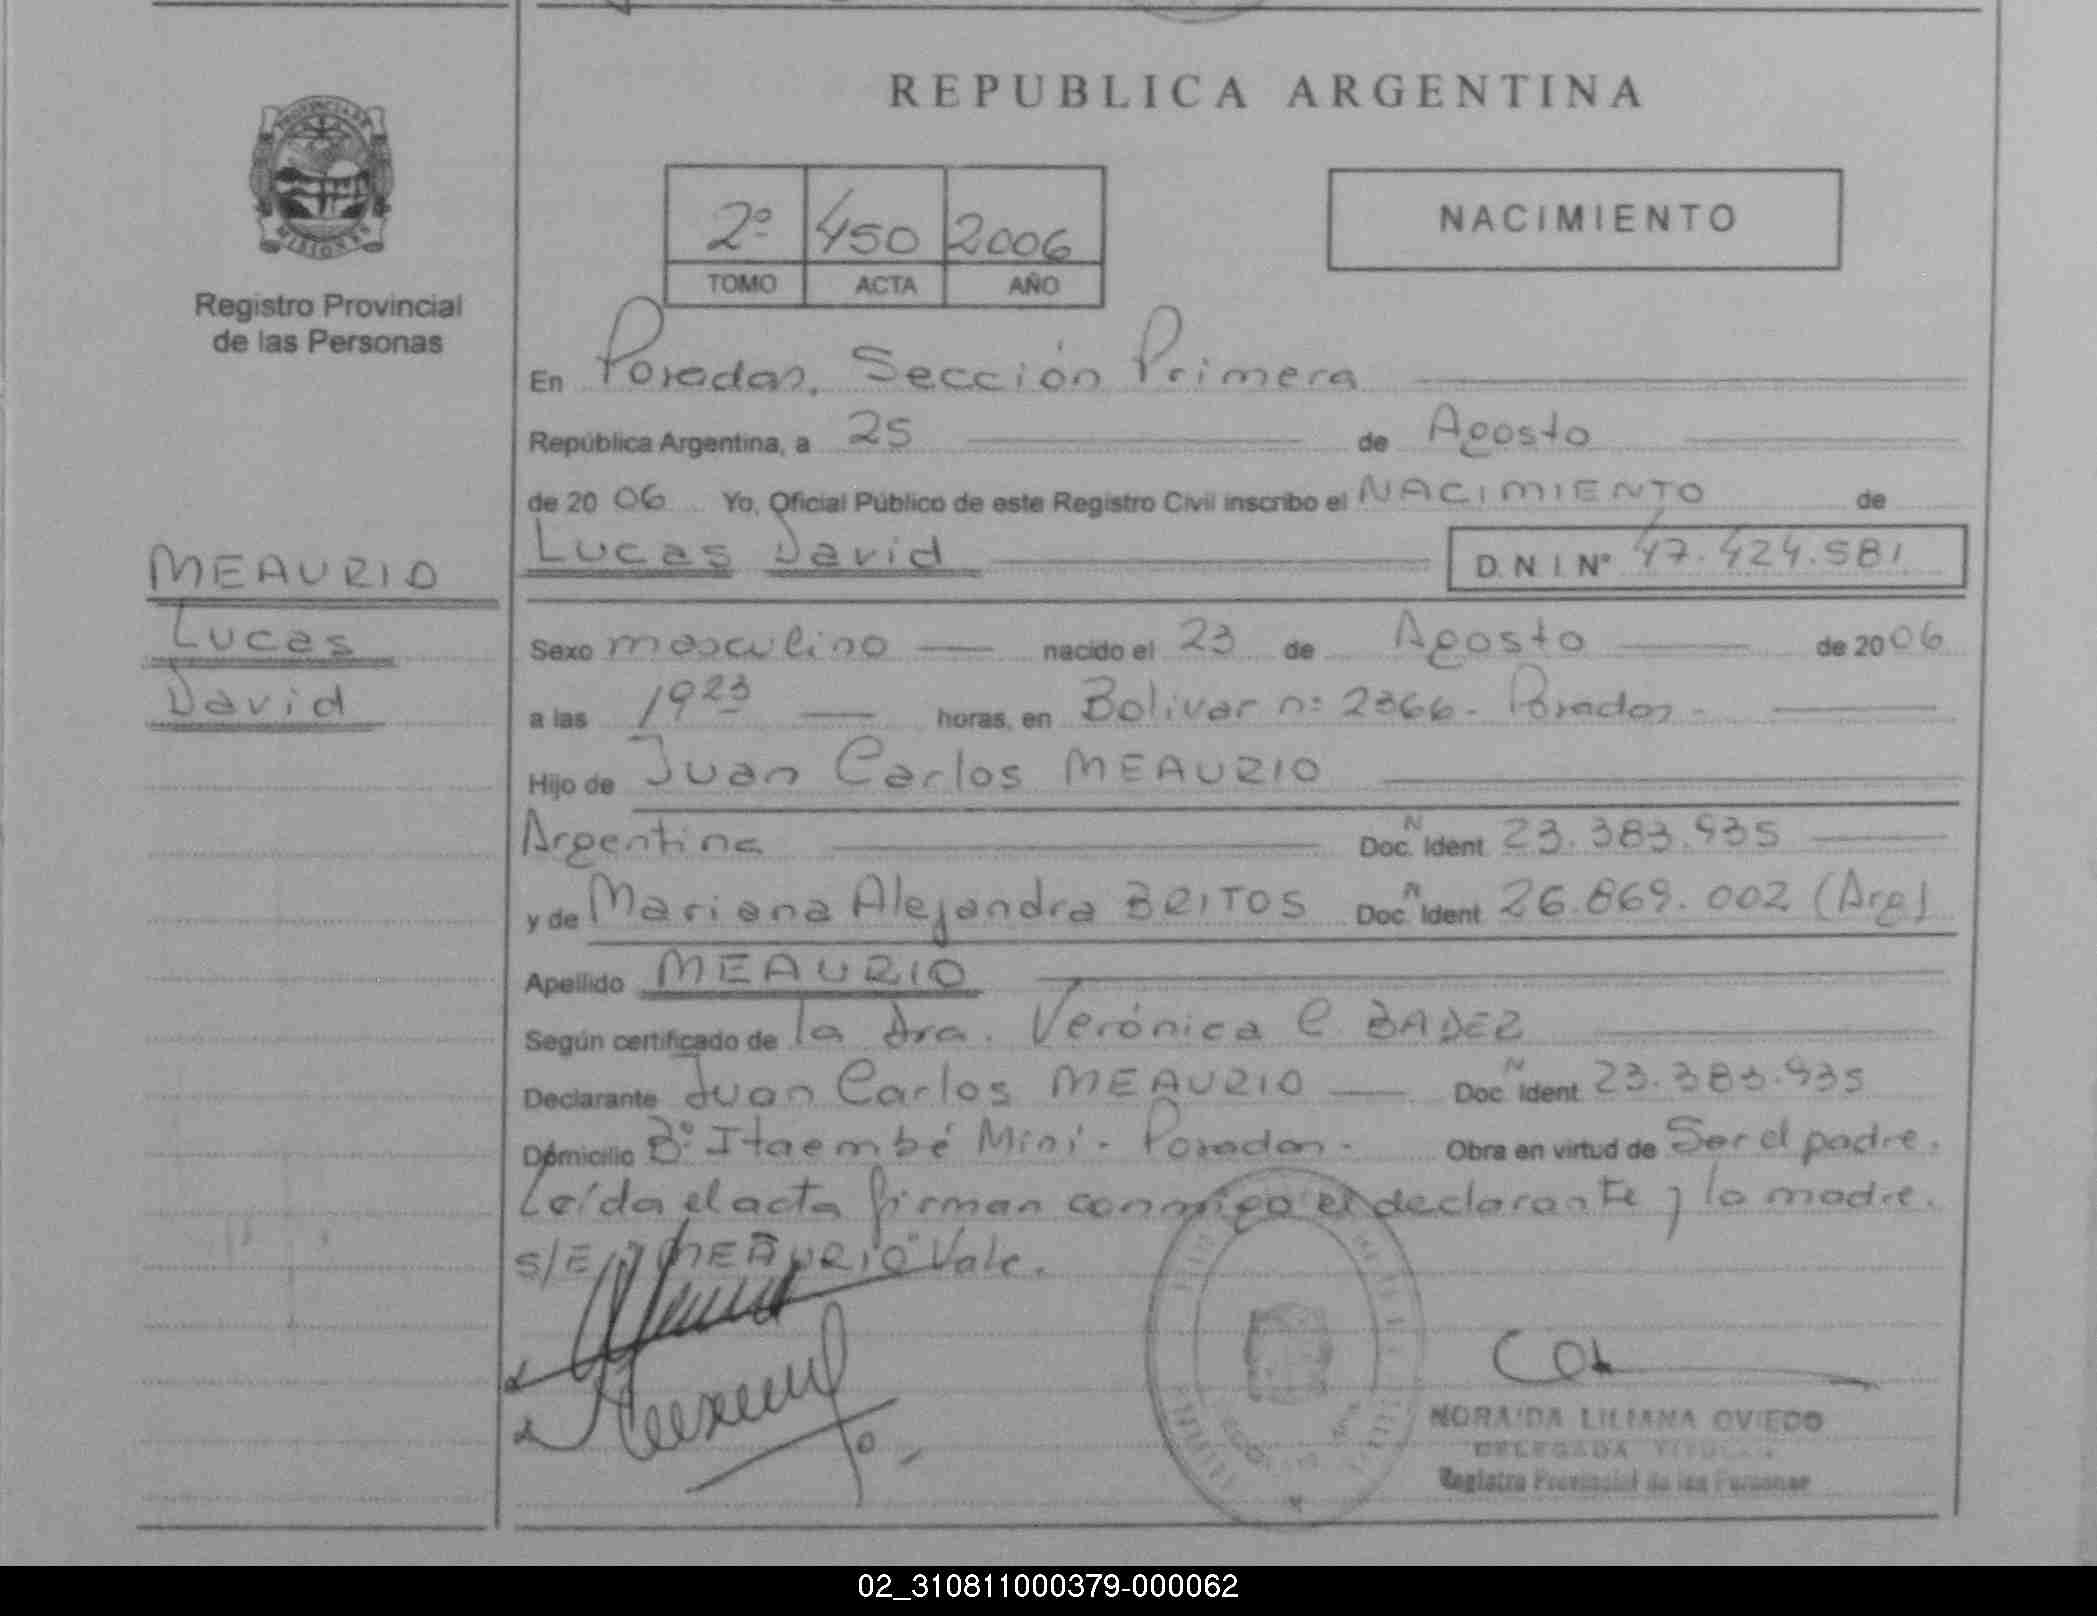 REPUBLICA ARGENTINA
PROVINCIA DE
MISIONES
Registro Provincial
de las Personas
2º 450 2006
TOMO ACTA AÑO
NACIMIENTO
En Posadas, Sección Primera
República Argentina, a 25 de Agosto
de 2006 Yo, Oficial Público de este Registro Civil inscribo el NACIMIENTO de
Lucas David D.N.I Nº 47.424.581
MEAURIO
Lucas
David
Sexo masculino nacido el 23 de Agosto de 2006
a las 1923 horas, en Bolivar nº 2366 - Posadas -
Hijo de Juan Carlos MEAURIO
Argentina Doc. N Ident 23.383.935
y de Mariana Alejandra BRITOS Doc. N Ident 26.869.002 (Arg)
Apellido MEAURIO
Según certificado de la Dra. Verónica C BADER
Declarante Juan Carlos MEAURIO Doc. N Ident 23.383.935
Domicilio Bº Itaembé Miní - Posadas - Obra en virtud de Ser el padre.
Leída el acta firman conmigo el declarante y la madre.
S/E "MEAURIO" Vale.
NORAIDA LILIANA OVIEDO
DELEGADA TITULAR
Registro Provincial de las Personas
02_310811000379-000062